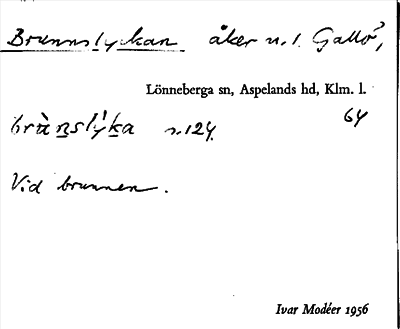 Brunnslyckan åker n. 1. Gallö,
Lönneberga sn, Aspelands hd, Klm. l.
64
brùnslýka n.124.
Vid brunnen.
Ivar Modéer 1956